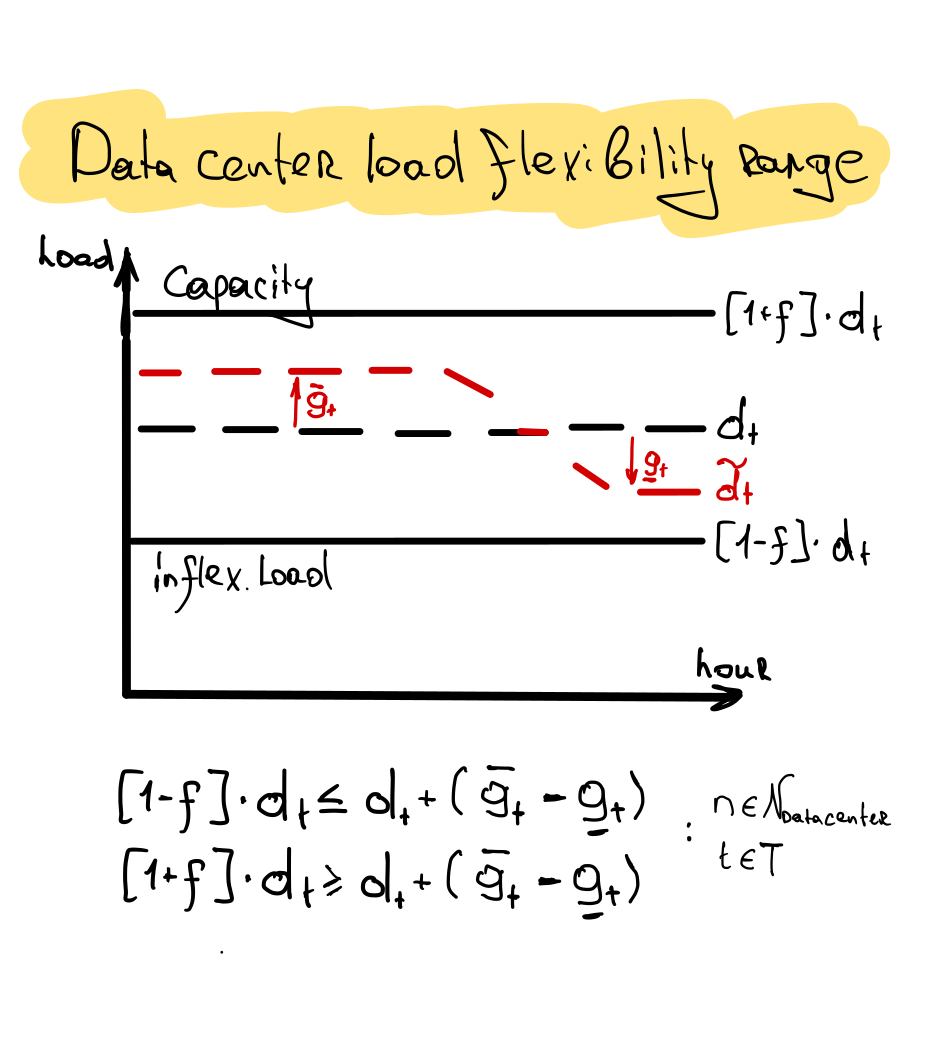 Data center load flexibility range
Load
Capacity
[1+f]·dₜ
ḡₜ
dₜ
g̲ₜ
d̃ₜ
[1-f]·dₜ
inflex. Load
hour
[1-f]·dₜ ≤ dₜ + (ḡₜ - g̲ₜ)
[1+f]·dₜ ≥ dₜ + (ḡₜ - g̲ₜ)
:
n ∈ N Datacenter
t ∈ T